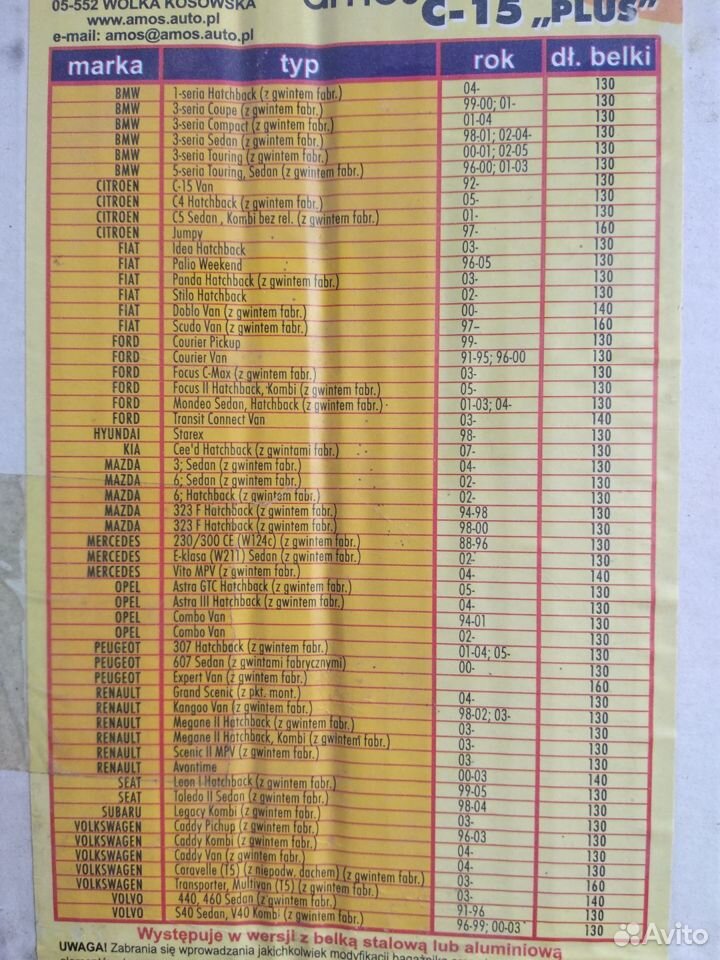 05-552 WÓLKA KOSOWSKA
www.amos.auto.pl
e-mail: amos@amos.auto.pl
amos C-15 „PLUS”
marka typ rok dł. belki
BMW 1-seria Hatchback (z gwintem fabr.) 04- 130
BMW 3-seria Coupe (z gwintem fabr.) 99-00; 01- 130
BMW 3-seria Compact (z gwintem fabr.) 01-04 130
BMW 3-seria Sedan (z gwintem fabr.) 98-01; 02-04- 130
BMW 3-seria Touring (z gwintem fabr.) 00-01; 02-05 130
BMW 5-seria Touring, Sedan (z gwintem fabr.) 96-00; 01-03 130
CITROEN C-15 Van 92- 130
CITROEN C4 Hatchback (z gwintem fabr.) 05- 130
CITROEN C5 Sedan , Kombi bez rel. (z gwintem fabr.) 01- 130
CITROEN Jumpy 97- 160
FIAT Idea Hatchback 03- 130
FIAT Palio Weekend 96-05 130
FIAT Panda Hatchback (z gwintem fabr.) 03- 130
FIAT Stilo Hatchback 02- 130
FIAT Doblo Van (z gwintem fabr.) 00- 140
FIAT Scudo Van (z gwintem fabr.) 97– 160
FORD Courier Pickup 99- 130
FORD Courier Van 91-95; 96-00 130
FORD Focus C-Max (z gwintem fabr.) 03- 130
FORD Focus II Hatchback, Kombi (z gwintem fabr.) 05- 130
FORD Mondeo Sedan, Hatchback (z gwintem fabr.) 01-03; 04- 130
FORD Transit Connect Van 03- 140
HYUNDAI Starex 98- 130
KIA Cee'd Hatchback (z gwintami fabr.) 07- 130
MAZDA 3; Sedan (z gwintem fabr.) 04- 130
MAZDA 6; Sedan (z gwintem fabr.) 02- 130
MAZDA 6; Hatchback (z gwintem fabr.) 02- 130
MAZDA 323 F Hatchback (z gwintem fabr.) 94-98 130
MAZDA 323 F Hatchback (z gwintem fabr.) 98-00 130
MERCEDES 230/300 CE (W124c) (z gwintem fabr.) 88-96 130
MERCEDES E-klasa (W211) Sedan (z gwintem fabr.) 02- 130
MERCEDES Vito MPV (z gwintem fabr.) 04- 140
OPEL Astra GTC Hatchback (z gwintem fabr.) 05- 130
OPEL Astra III Hatchback (z gwintem fabr.) 04- 130
OPEL Combo Van 94-01 130
OPEL Combo Van 02- 130
PEUGEOT 307 Hatchback (z gwintem fabr.) 01-04; 05- 130
PEUGEOT 607 Sedan (z gwintami fabrycznymi) 00- 130
PEUGEOT Expert Van (z gwintem fabr.) 160
RENAULT Grand Scenic (z pkt. mont.) 04- 130
RENAULT Kangoo Van (z gwintem fabr.) 98-02; 03- 130
RENAULT Megane II Hatchback (z gwintem fabr.) 03- 130
RENAULT Megane II Hatchback, Kombi (z gwintem fabr.) 03- 130
RENAULT Scenic II MPV (z gwintem fabr.) 03- 130
RENAULT Avantime 00-03 140
SEAT Leon I Hatchback (z gwintem fabr.) 99-05 130
SEAT Toledo II Sedan (z gwintem fabr.) 98-04 130
SUBARU Legacy Kombi (z gwintem fabr.) 03- 130
VOLKSWAGEN Caddy Pichup (z gwintem fabr.) 96-03 130
VOLKSWAGEN Caddy Kombi (z gwintem fabr.) 04- 130
VOLKSWAGEN Caddy Van (z gwintem fabr.) 04- 130
VOLKSWAGEN Caravelle (T5) (z niepodw. dachem) (z gwintem fabr.) 03- 160
VOLKSWAGEN Transporter, Multivan (T5) (z gwintem fabr.) 03- 140
VOLVO 440, 460 Sedan (z gwintem fabr.) 91-96 130
VOLVO S40 Sedan, V40 Kombi (z gwintem fabr.) 96-99; 00-03 130
Występuje w wersji z belką stalową lub aluminiową
UWAGA! Zabrania się wprowadzania jakichkolwiek modyfikacji
Avito